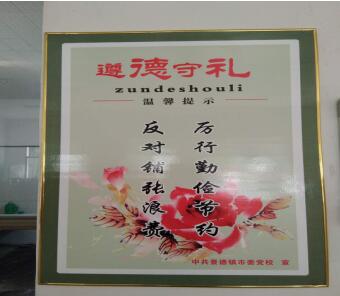 遵德守礼
zundeshouli
温馨提示
厉行勤俭节约
反对铺张浪费
中共景德镇市委党校 宣